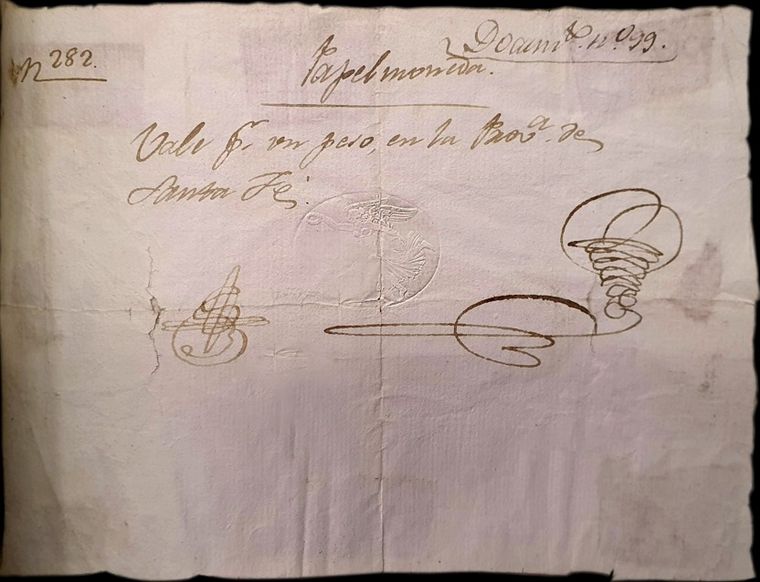 Docum.to n.o 99.
N 282.
Papel moneda.
Vale pr. un peso, en la Prov.a de
Santa Fé.